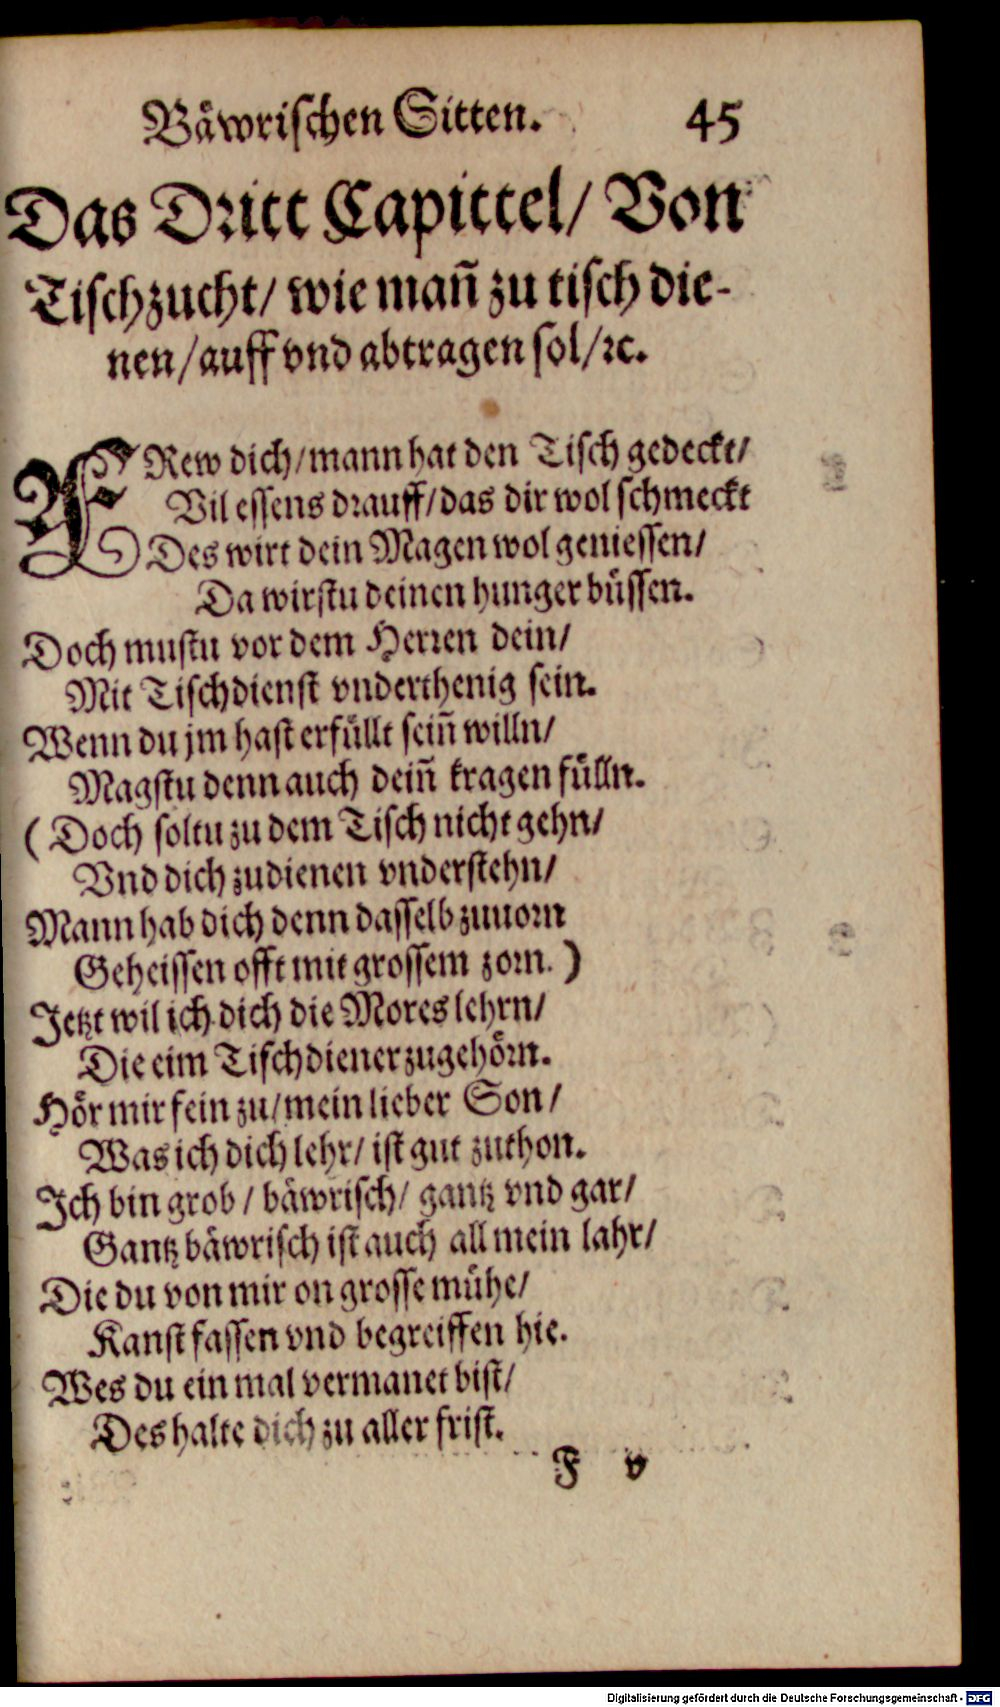 Bäwrischen Sitten. 45
Das Dritt Capittel/ Von
Tischzucht/ wie man̄ zu tisch die-
nen/ auff vnd abtragen sol/ ꝛc.
FRew dich/ mann hat den Tisch gedeckt/
Vil essens drauff/ das dir wol schmeckt
Des wirt dein Magen wol geniessen/
Da wirstu deinen hunger büssen.
Doch mustu vor dem Herren dein/
Mit Tischdienst vnderthenig sein.
Wenn du jm hast erfüllt sein̄ willn/
Magstu denn auch dein̄ kragen fülln.
(Doch soltu zu dem Tisch nicht gehn/
Vnd dich zudienen vnderstehn/
Mann hab dich denn dasselb zuuorn
Geheissen offt mit grossem zorn.)
Jetzt wil ich dich die Mores lehrn/
Die eim Tischdiener zugehörn.
Hör mir fein zu/ mein lieber Son/
Was ich dich lehr/ ist gut zuthon.
Ich bin grob/ bäwrisch/ gantz vnd gar/
Gantz bäwrisch ist auch all mein lahr/
Die du von mir on grosse mühe/
Kanst fassen vnd begreiffen hie.
Wes du ein mal vermanet bist/
Des halte dich zu aller frist.
F v
Digitalisierung gefördert durch die Deutsche Forschungsgemeinschaft - DFG